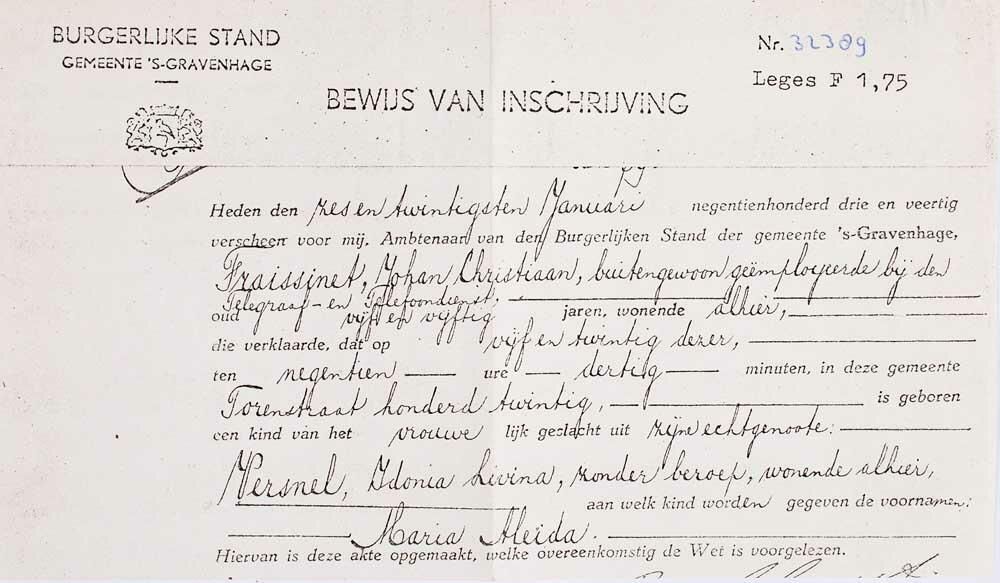 BURGERLIJKE STAND
GEMEENTE 'S-GRAVENHAGE
Nr. 32389
Leges F 1,75
BEWIJS VAN INSCHRIJVING
Heden den zes en twintigsten Januari negentienhonderd drie en veertig
verscheen voor mij, Ambtenaar van den Burgerlijken Stand der gemeente 's-Gravenhage,
Fraissinet, Johan Christiaan, buitengewoon geëmployeerde bij den
Telegraaf- en Telefoondienst,
oud vijf en vijftig jaren, wonende alhier,
die verklaarde, dat op vijf en twintig dezer,
ten negentien ure dertig minuten, in deze gemeente
Torenstraat honderd twintig, is geboren
een kind van het vrouwe lijk geslacht uit zijne echtgenoote:
Versnel, Idonia Livina, zonder beroep, wonende alhier,
aan welk kind worden gegeven de voornamen:
Maria Aleida.
Hiervan is deze akte opgemaakt, welke overeenkomstig de Wet is voorgelezen.